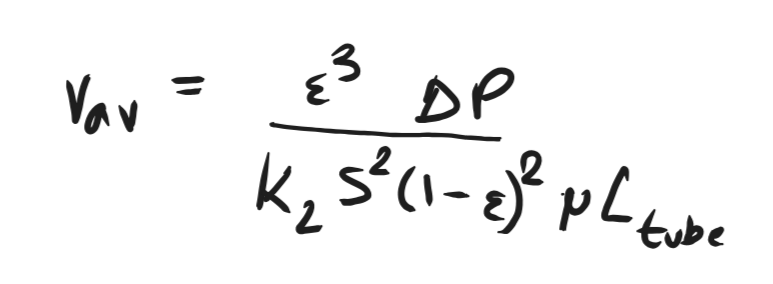 v_av = ε³ ΔP / k₂ S² (1-ε)² μ L_tube